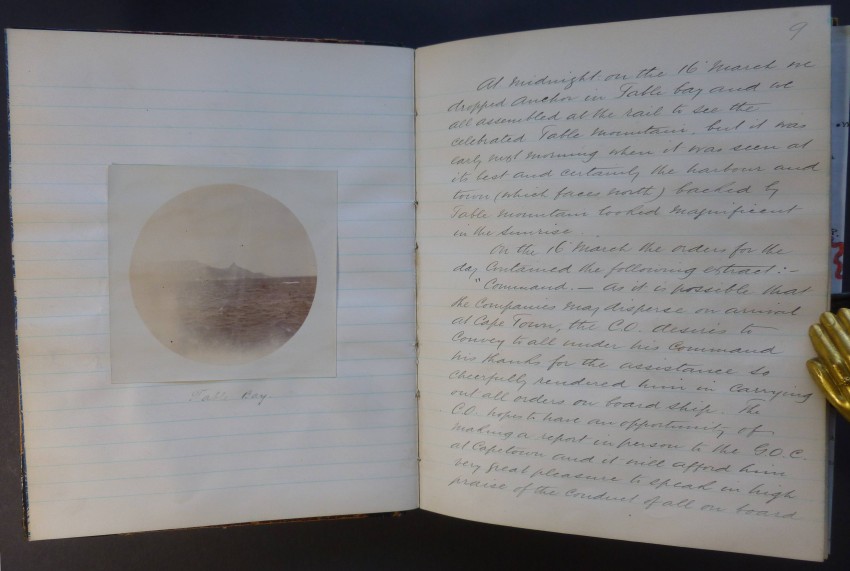 Table Bay.
9
At midnight on the 16 March we
dropped anchor in Table bay and we
all assembled at the rail to see the
celebrated Table Mountain, but it was
early next morning when it was seen at
its best and certainly the harbour and
town (which faces north) backed by
Table Mountain looked magnificent
in the sunrise.
On the 16 March the orders for the
day contained the following extract:-
"Command. — As it is possible that
the Companies may disperse on arrival
at Cape Town, the C.O. desires to
convey to all under his Command
his thanks for the assistance so
cheerfully rendered him in carrying
out all orders on board ship. The
C.O. hopes to have an opportunity of
making a report in person to the G.O.C.
at Capetown and it will afford him
very great pleasure to speak in high
praise of the conduct of all on board